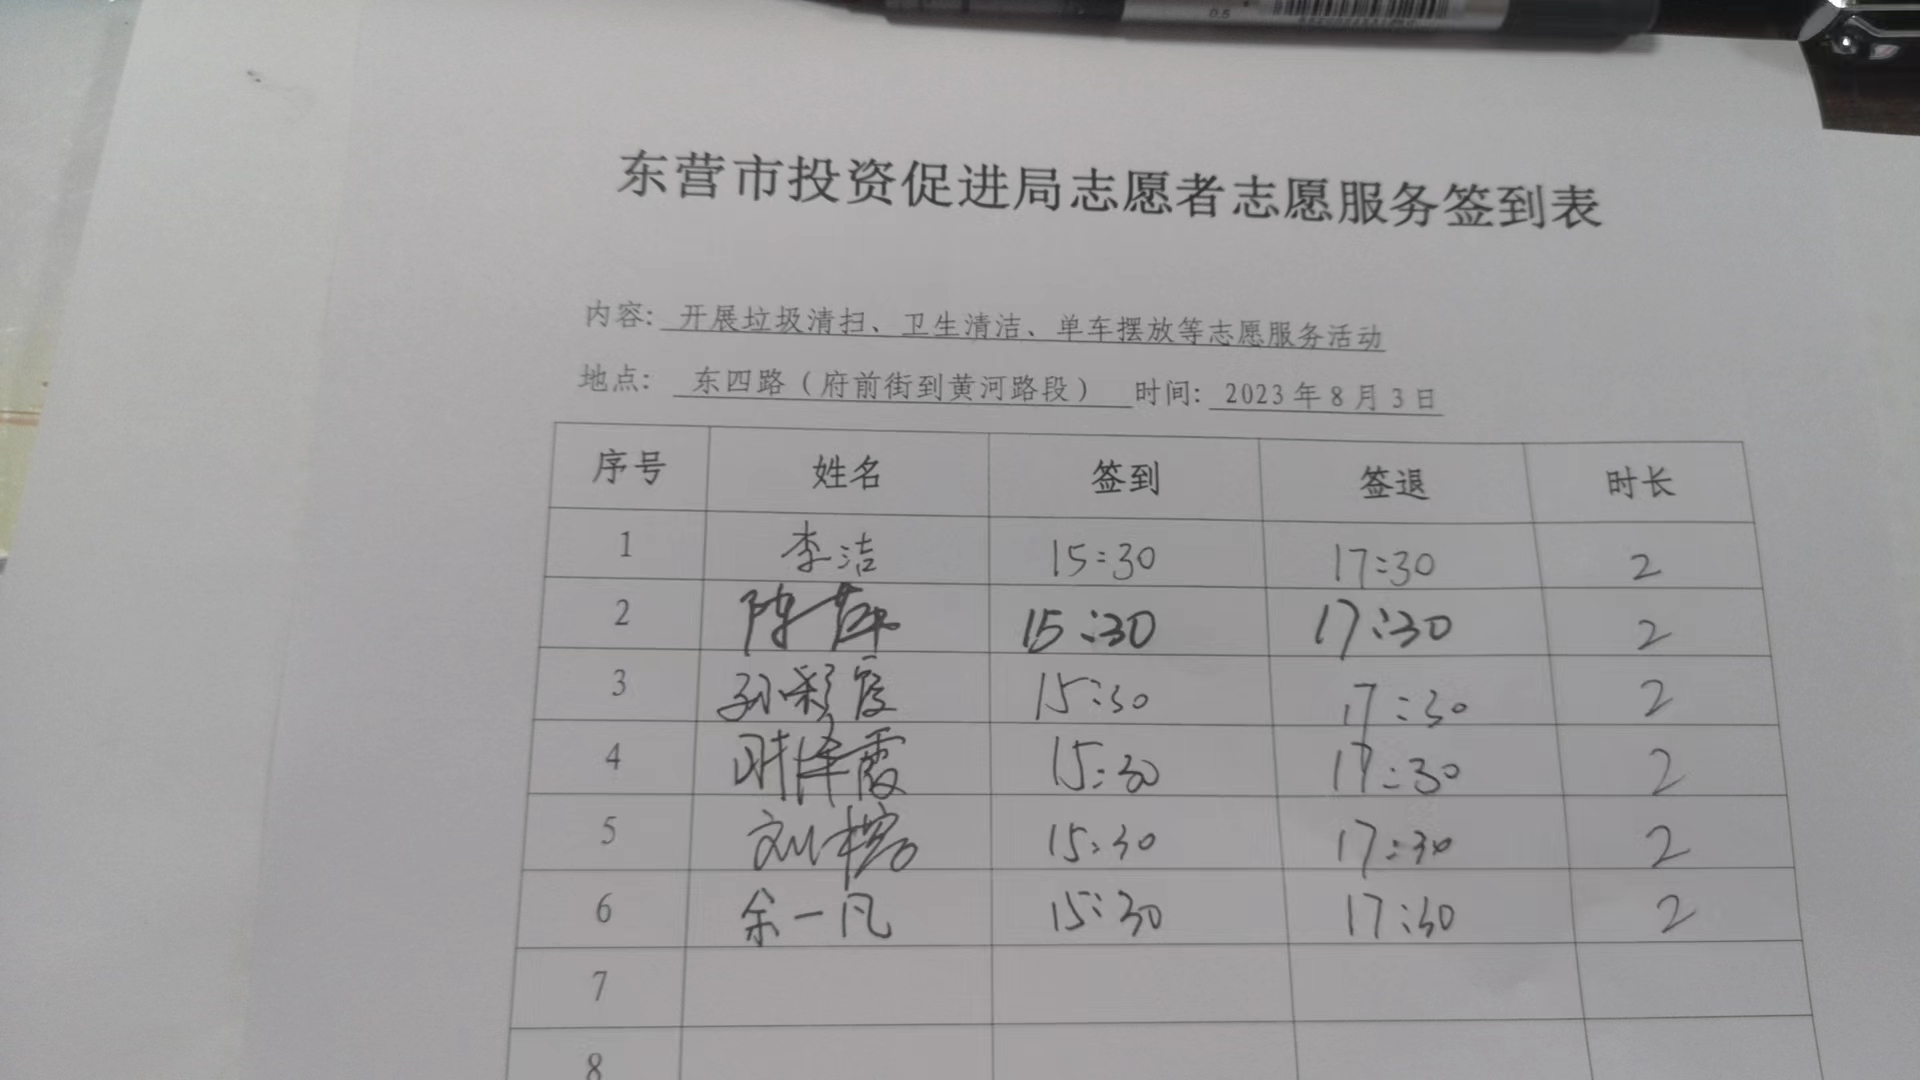 0.5
东营市投资促进局志愿者志愿服务签到表
内容: 开展垃圾清扫、卫生清洁、单车摆放等志愿服务活动
地点: 东四路（府前街到黄河路段） 时间: 2023年8月3日
序号 姓名 签到 签退 时长
1 李洁 15:30 17:30 2
2 陈萍 15:30 17:30 2
3 孙彩霞 15:30 17:30 2
4 霞 15:30 17:30 2
5 刘 15:30 17:30 2
6 余一凡 15:30 17:30 2
7
8